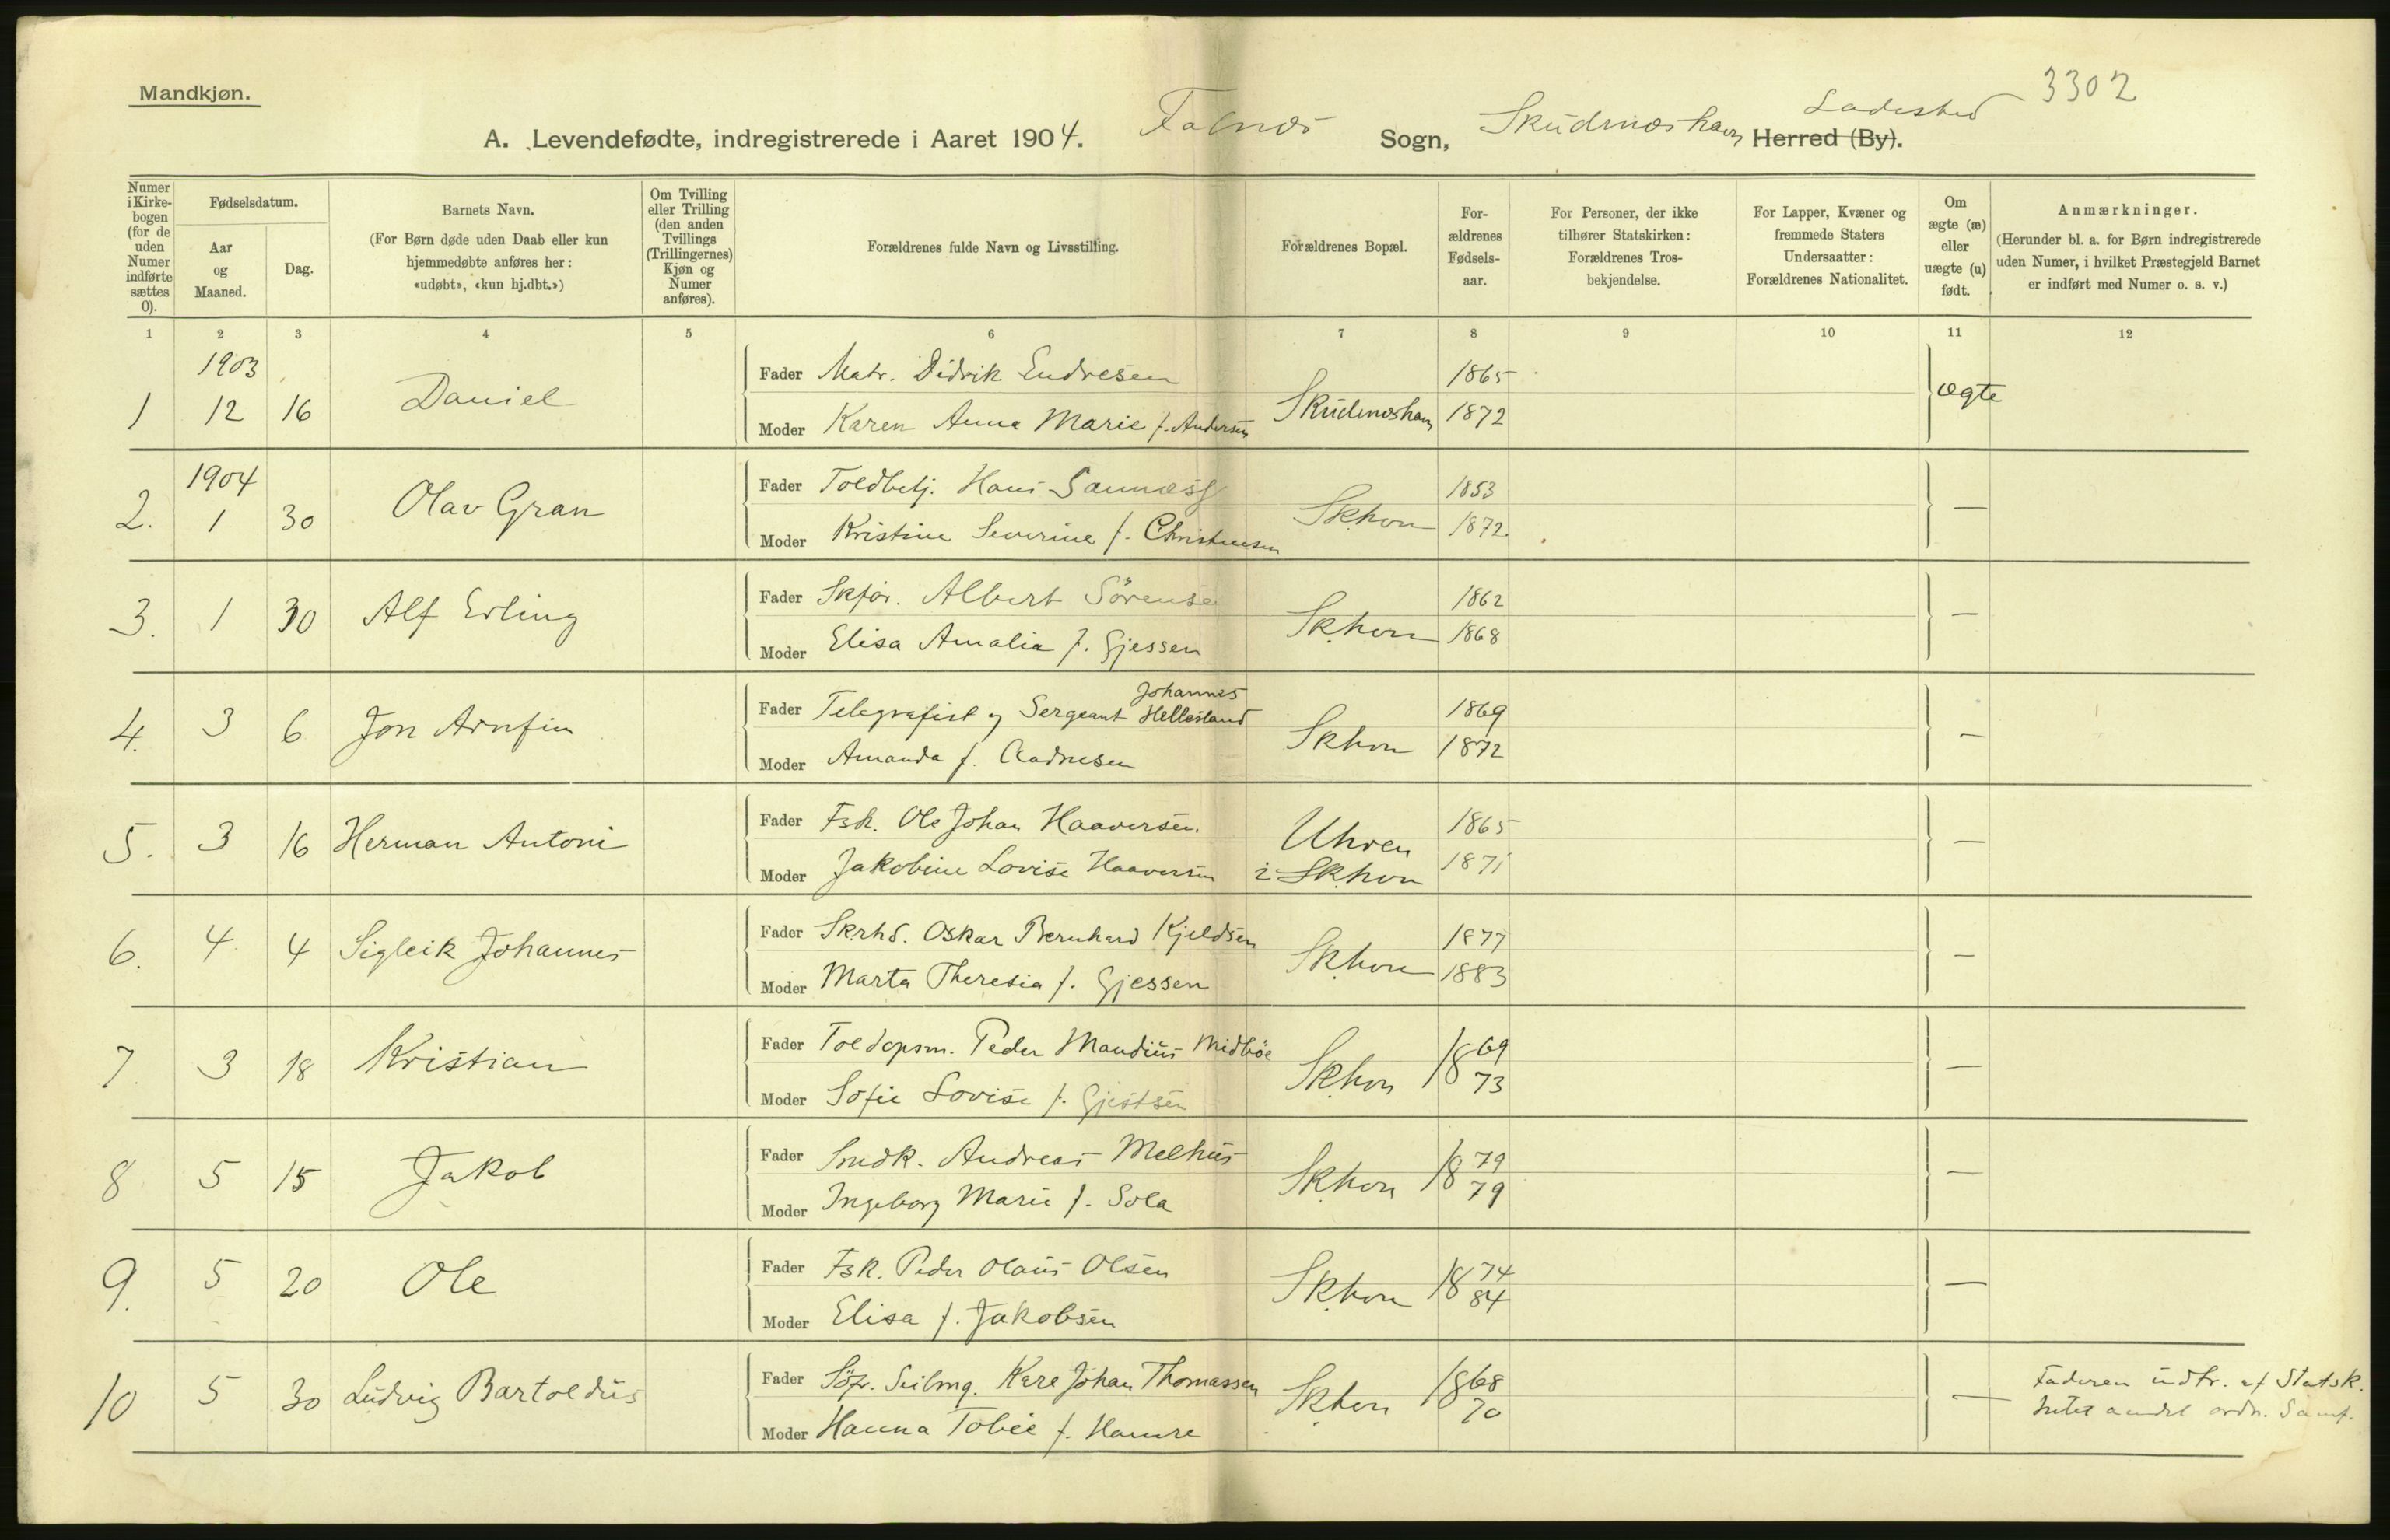 Mandkjøn.
3302
A. Levendefødte, indregistrerede i Aaret 1904. Falnæs Sogn, Skudenæshavn Ladested Herred (By).
Numer i Kirke-bogen (for de uden Numer indførte sættes 0).
Fødselsdatum.
Aar og Maaned.
Dag.
Barnets Navn.
(For Børn døde uden Daab eller kun hjemmedøbte anføres her: «udøbt», «kun hj.dbt.»)
Om Tvilling eller Trilling (den anden Tvillings (Trillingernes) Kjøn og Numer anføres).
Forældrenes fulde Navn og Livsstilling.
Forældrenes Bopæl.
For-ældrenes Fødsels-aar.
For Personer, der ikke tilhører Statskirken: Forældrenes Tros-bekjendelse.
For Lapper, Kvæner og fremmede Staters Undersaatter: Forældrenes Nationalitet.
Om ægte (æ) eller uægte (u) født.
Anmærkninger.
(Herunder bl. a. for Børn indregistrerede uden Numer, i hvilket Præstegjeld Barnet er indført med Numer o. s. v.)
1 2 3 4 5 6 7 8 9 10 11 12
1903
1 12 16 Daniel
Fader Matr. Didrik Endresen 1865
Moder Karen Anna Marie f. Andersen Skudenæshavn 1872 ægte
1904
2. 1 30 Olav Gran
Fader Toldbetj. Hans Sannæss 1853
Moder Kristine Severine f. Christensen Skhvn 1872. —
3. 1 30 Alf Erling
Fader Skfør. Albert Sörensen 1862
Moder Elisa Amalia f. Gjessen Skhvn 1868 —
4. 3 6 Jon Arnfin
Fader Telegrafist og Sergeant Johannes Hellesland 1869
Moder Amanda f. Aadnesen Skhvn 1872 —
5. 3 16 Herman Antoni
Fader Fsk. Ole Johan Haaversen. Uhren 1865
Moder Jakobine Lovise Haaversen i Skhvn 1871 —
6. 4 4 Sigleik Johannes
Fader Skrhd. Oskar Bernhard Kjeldsen 1877
Moder Marta Theresia f. Gjessen Skhvn 1883 —
7. 3 18 Kristian
Fader Toldopsm. Peder Mandius Midböe 1869
Moder Sofie Lovise f. Gjestsen Skhvn 73 —
8 5 15 Jakob
Fader Smdk. Andreas Melhus 1879
Moder Ingeborg Marie f. Sola Skhvn 79 —
9. 5 20 Ole
Fader Fsk. Peder Olaus Olsen 1874
Moder Elisa f. Jakobsen Skhvn 84 —
10 5 30 Ludvig Bartoldus
Fader Johan Thomassen 1868 Faderen udtr. af Statsk.
Moder Hanna Tobie f. Hamre Skhvn 70 — Intet andet ordn. Samf.